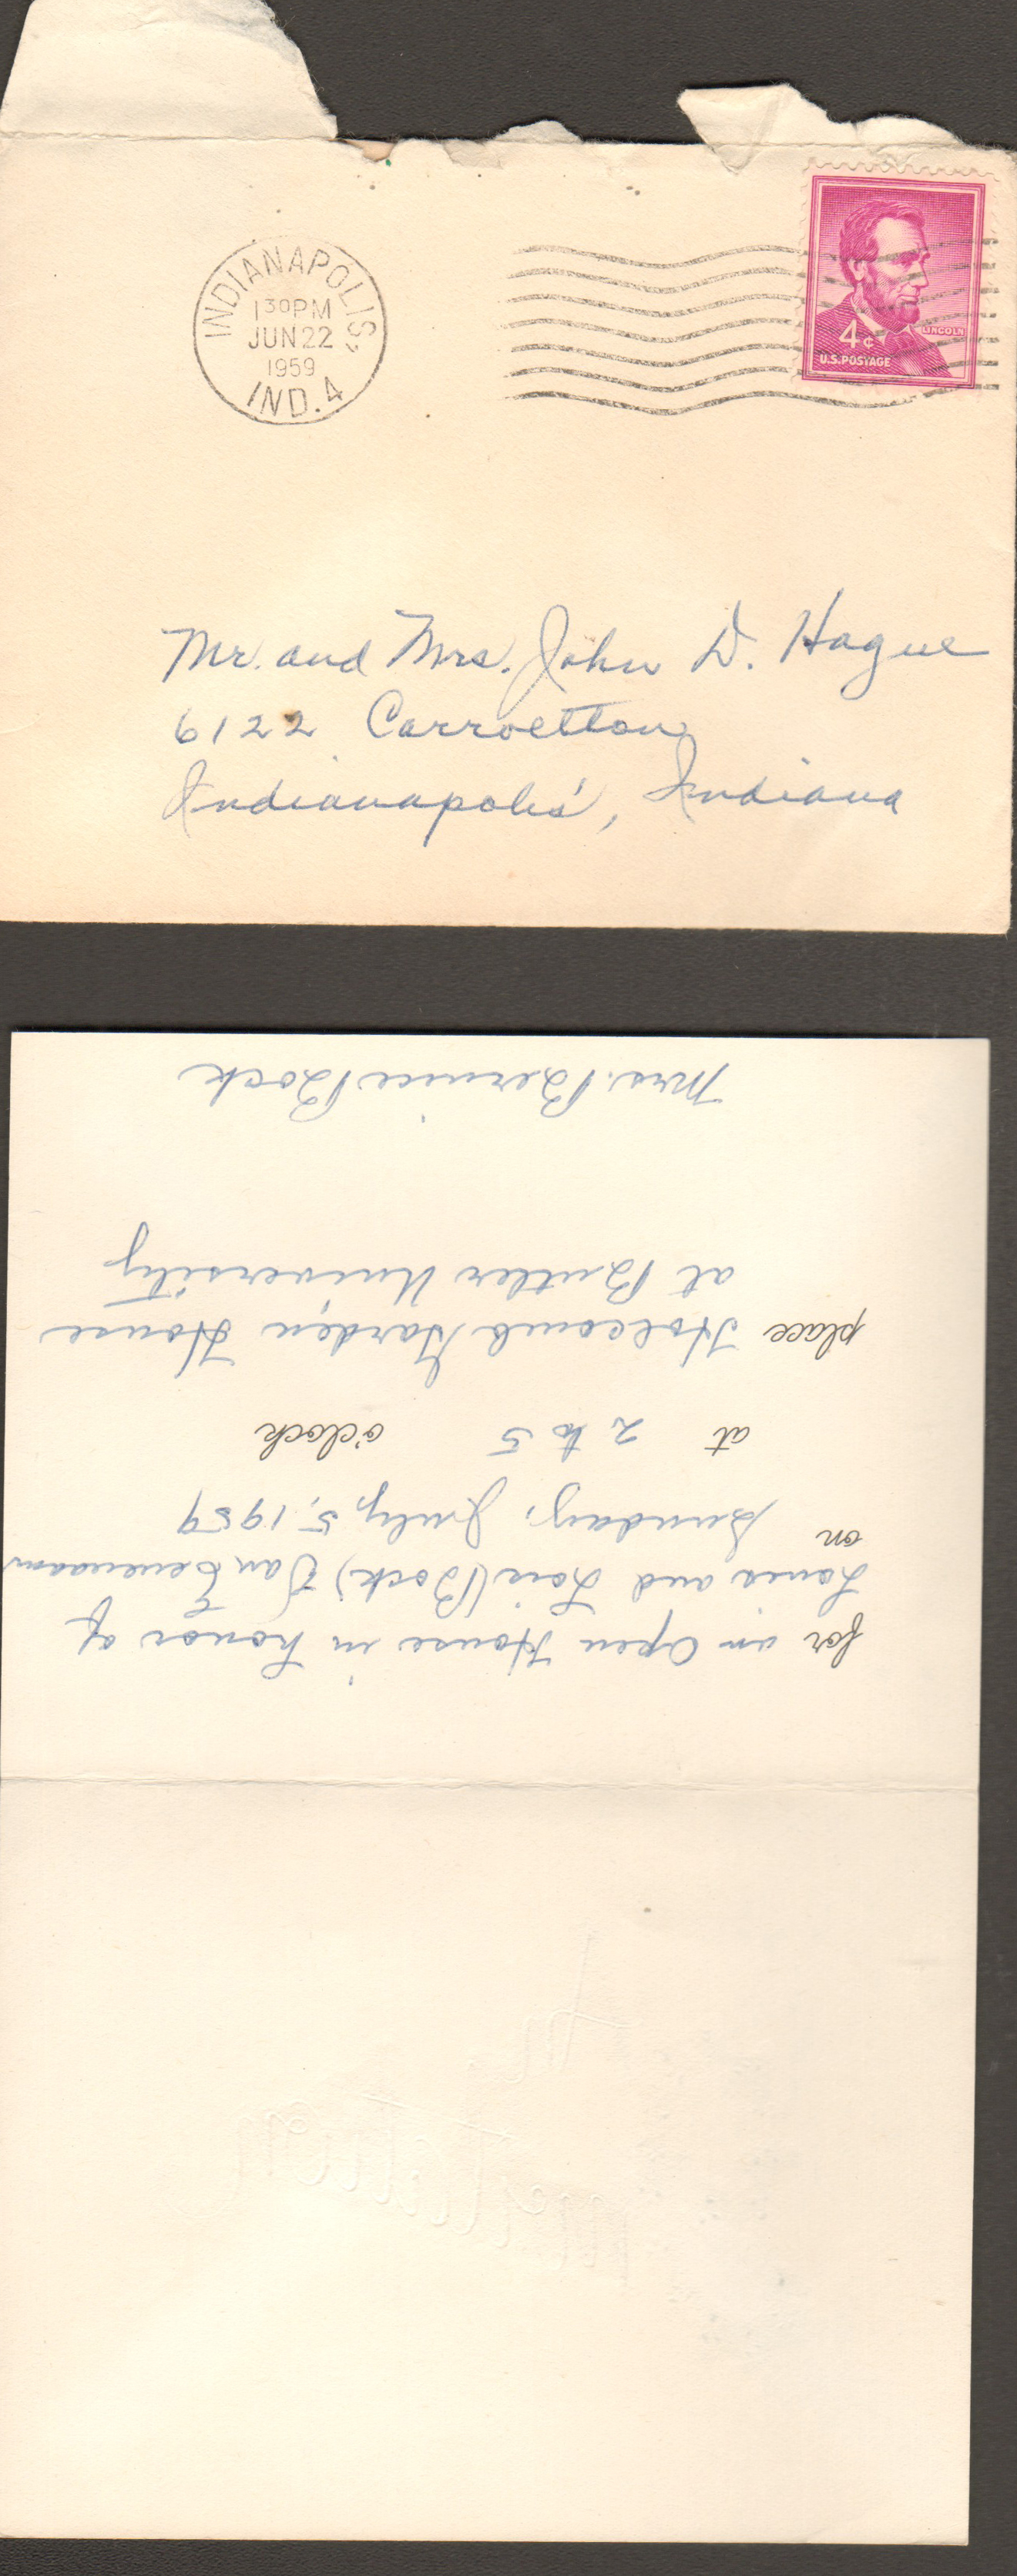 INDIANAPOLIS,
1 30 PM
JUN 22
1959
IND. 4
LINCOLN
4¢
U.S. POSTAGE
Mr. and Mrs. John D. Hague
6122 Carrollton
Indianapolis, Indiana
for an Open House in honor of
Louis and Lois (Bock) Van
on Sunday, July, 5, 1959
at 2 to 5 o'clock
place Holcomb Garden House
at Butler University
Mrs. Bernice Bock